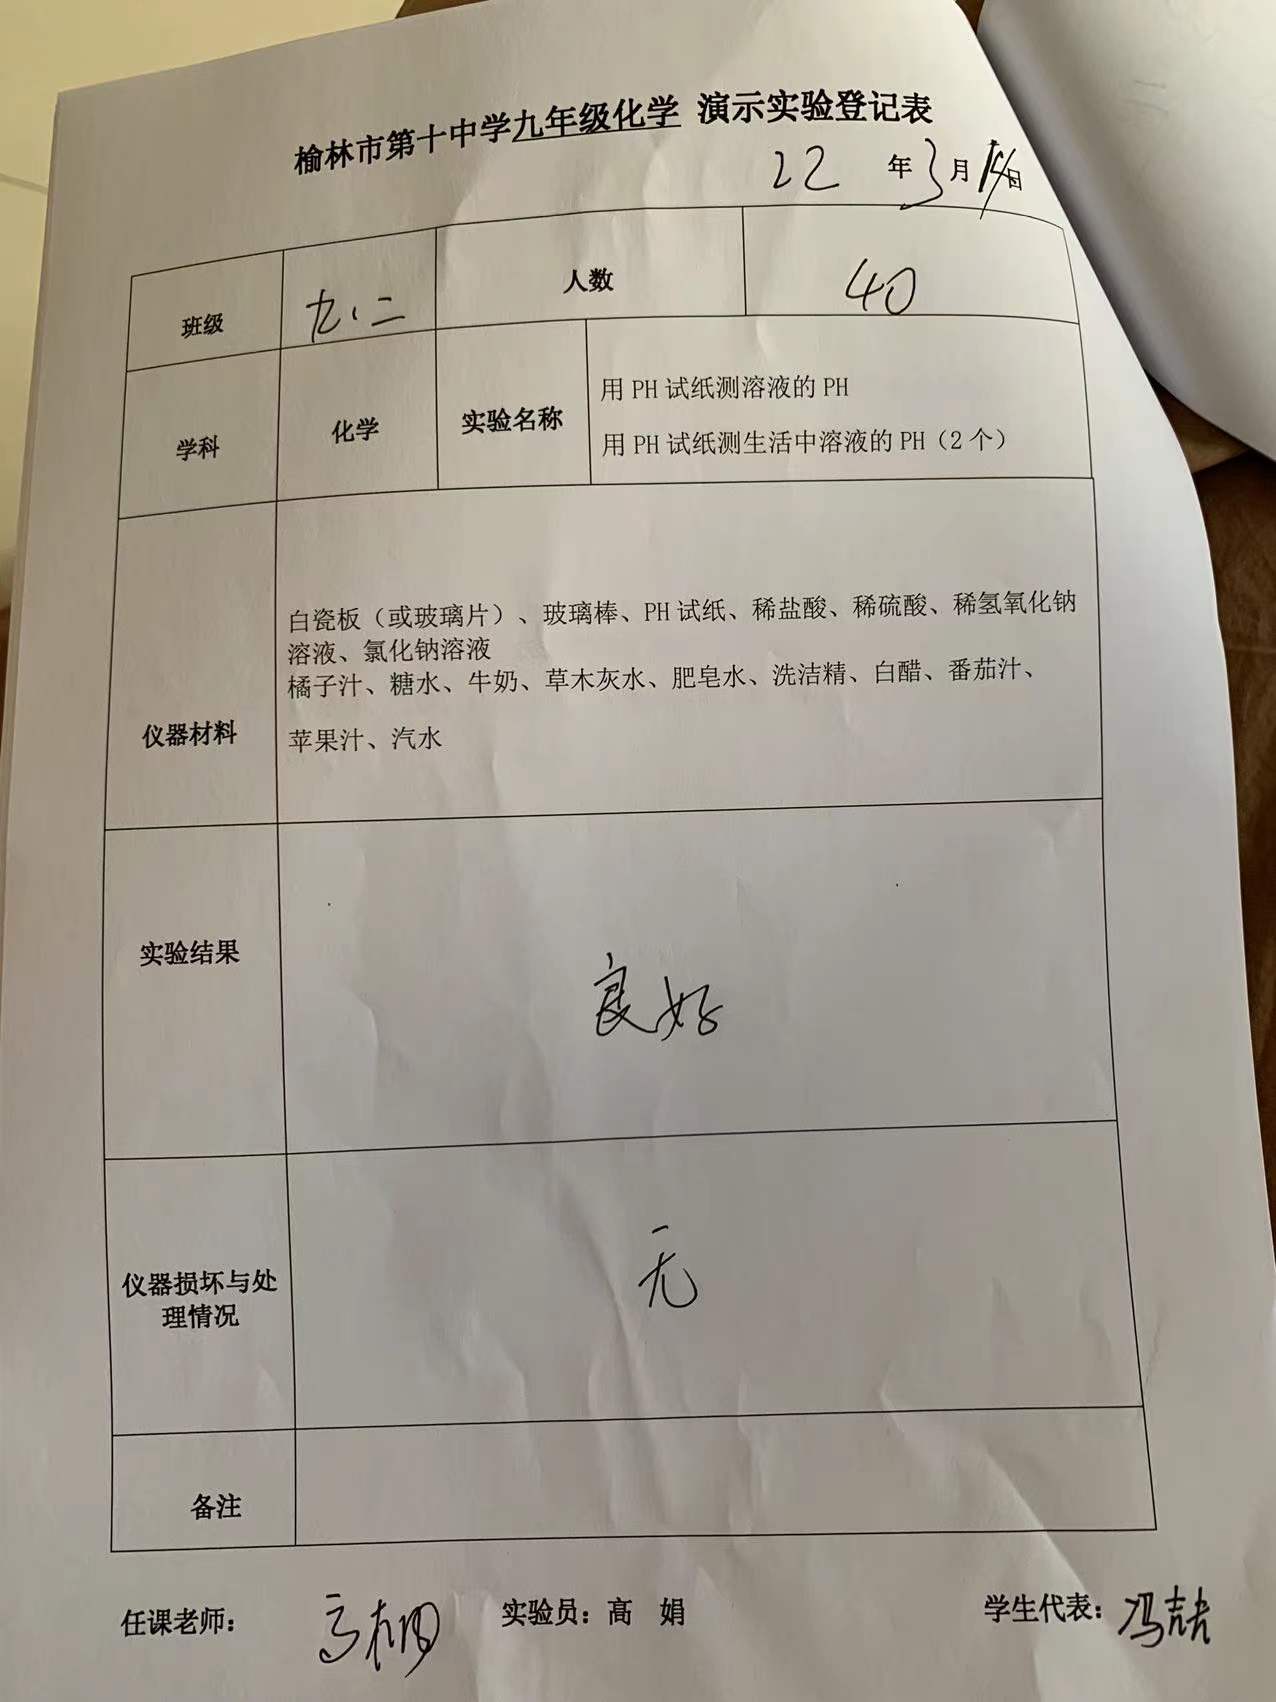 榆林市第十中学九年级化学 演示实验登记表
22 年 3 月 14 日
班级 九.二 人数 40
学科 化学 实验名称 用 PH 试纸测溶液的 PH
用 PH 试纸测生活中溶液的 PH（2 个）
仪器材料
白瓷板（或玻璃片）、玻璃棒、PH 试纸、稀盐酸、稀硫酸、稀氢氧化钠
溶液、氯化钠溶液
橘子汁、糖水、牛奶、草木灰水、肥皂水、洗洁精、白醋、番茄汁、
苹果汁、汽水
实验结果 良好
仪器损坏与处
理情况
无
备注
任课老师： 实验员：高 娟 学生代表：冯喆